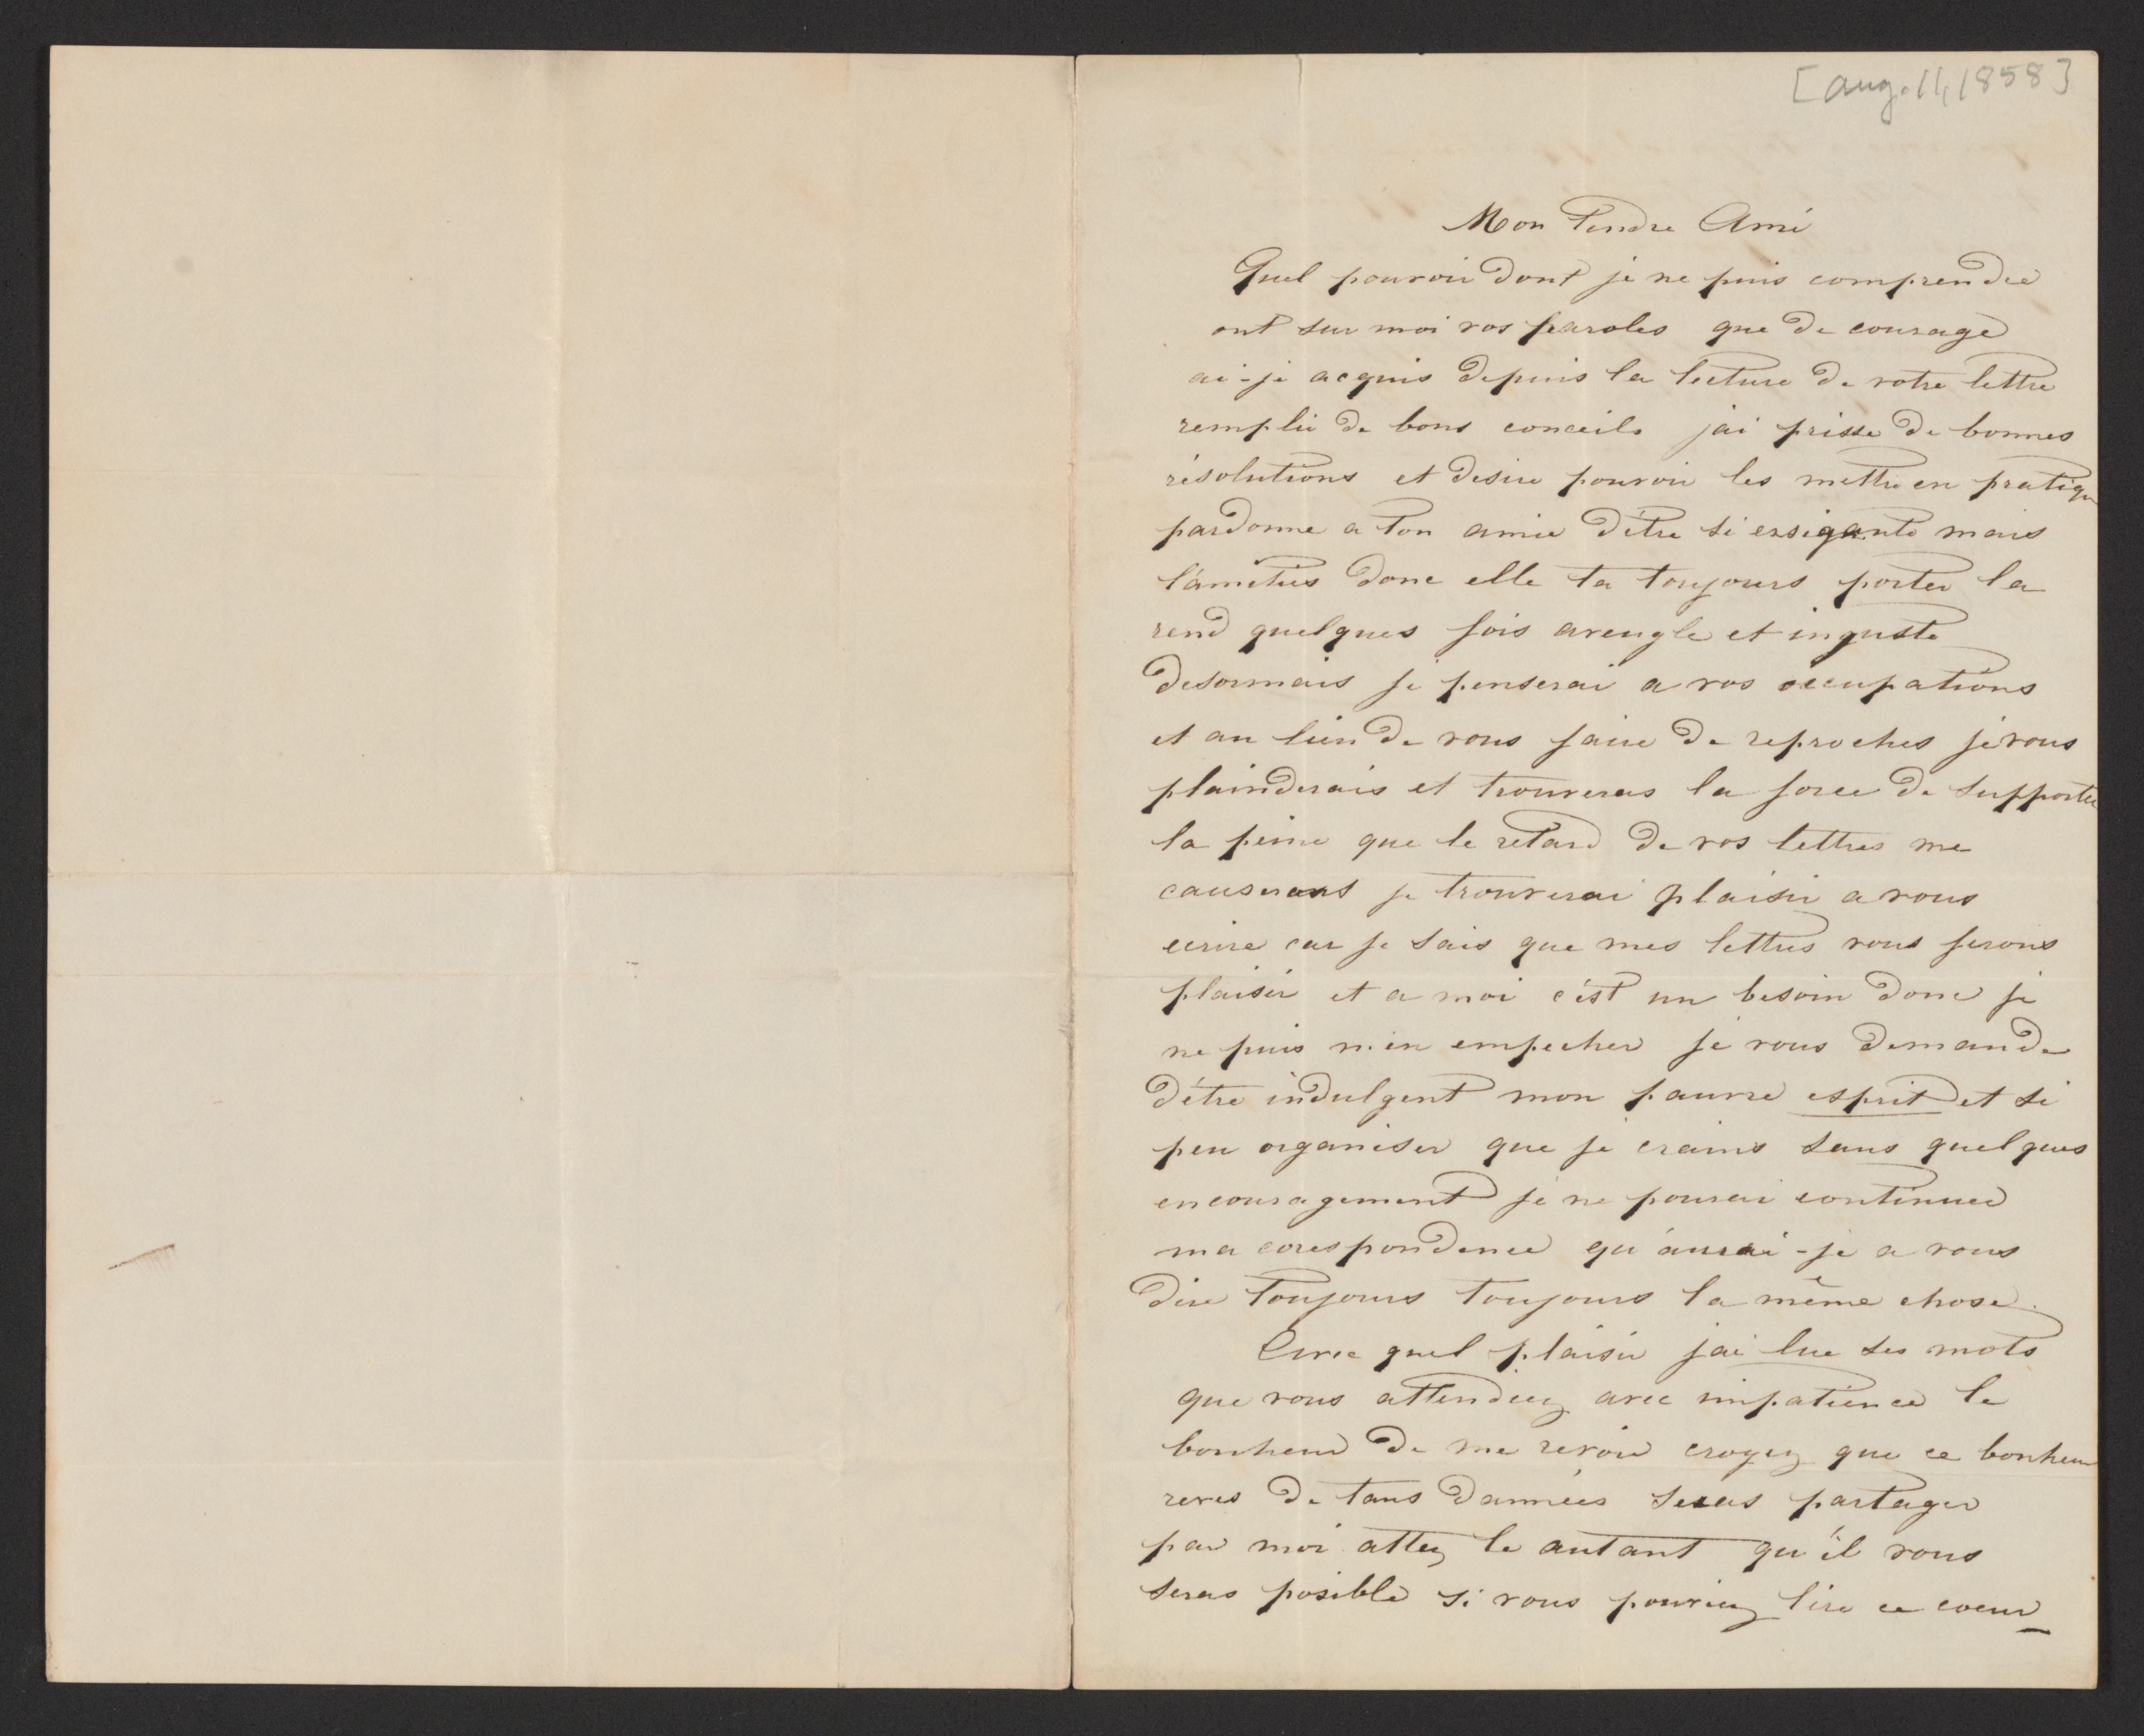 [Aug. 11, 1858]
Mon Tendre Ami
Quel pouvoir dont je ne puis comprendre
ont sur moi vos paroles que de courage
ai-je acquis depuis la lecture de votre lettre
remplie de bons conceils jai prisse de bonnes
résolutions et desire pouvoir les mettre en pratique
pardonne a ton amie d'être si exsigante mais
l'amitiés donc elle ta toujours porter la
rend quelques fois aveugle et injuste
desormais je penserai a vos occupations
et au lieu de vous faire de reproches je vous
plainderais et trouveras la force de supporter
la peine que le retard de vos lettres me
causerons je trouverai plaisir a vous
ecrire car je sais que mes lettres vous ferons
plaisir et a moi c'est un besoin donc je
ne puis m'en empecher je vous demande
d'être indulgent mon pauvre esprit et si
peu organiser que je crains sans quelques
encouragement je ne pourai continuer
ma corespondence qu'aurai-je a vous
dire toujours toujours la même chose.
Avec quel plaisir j'ai lue ses mots
que vous attendiez avec impatience le
bonheur de me revoir croyez que ce bonheur
reves de tans dannées seras partager
par moi attez le autant qu'il vous
seras posible si vous pouviez lire ce coeur